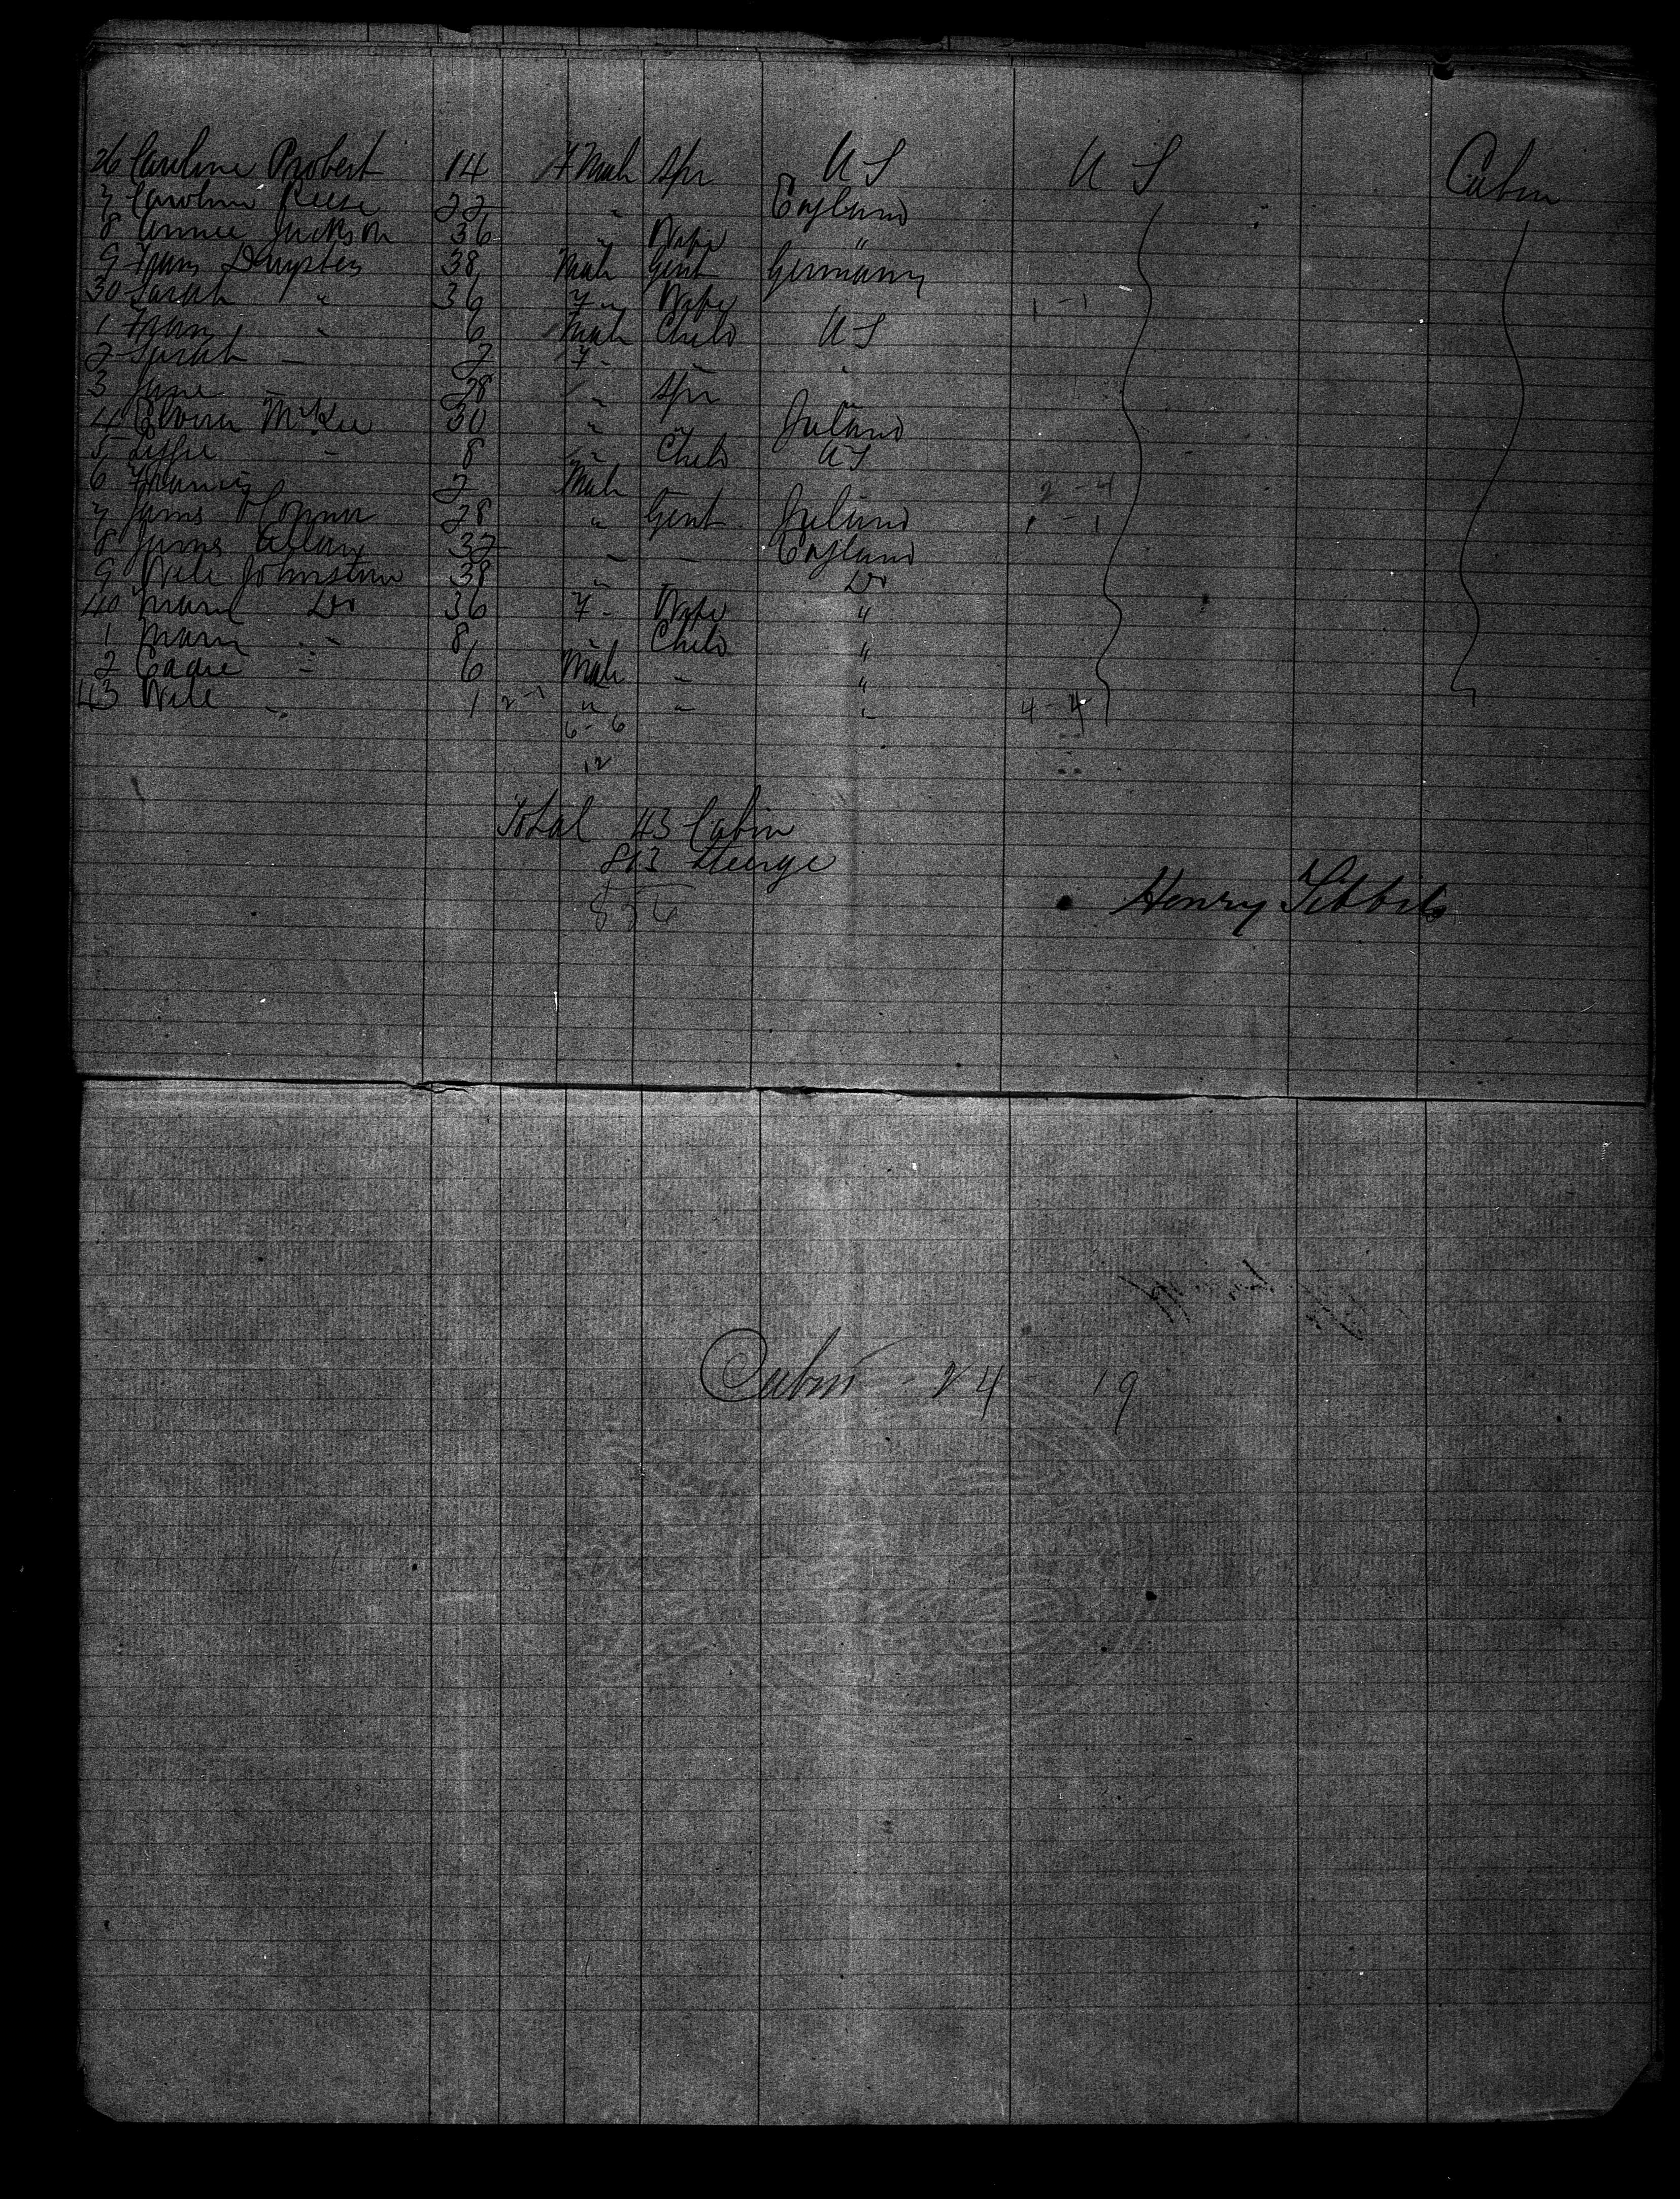 26 Caroline Probert 14 F Male Spr U S U S Cabin
7 Caroline Reese 22 " England
8 Annie Jackson 36 " Wife "
9 Franz 38 Male Gent Germany
30 Sarah " 36 F " Wife 1 - 1
1 Franz " 6 Male Child U S
2 Sarah - 2 F -
3 Jane - 28 " Spr
4 McKee 30 " Ireland
5 - 8 " Child U S
6 Francis 2 Male 2 - 4
7 James O'Connor 28 " Gent Ireland 1 - 1
8 James 32 - - England
9 Will Johnstone 38 " Do
40 Mary Do 36 F - Wife "
1 8 " Child "
2 6 Male " "
43 Will " 1 2 - 1 " " " 4 - 4
6 - 6
12
Total 43 Cabin
813 Steerage
856
Henry Tibbits
Cabin - 24 19